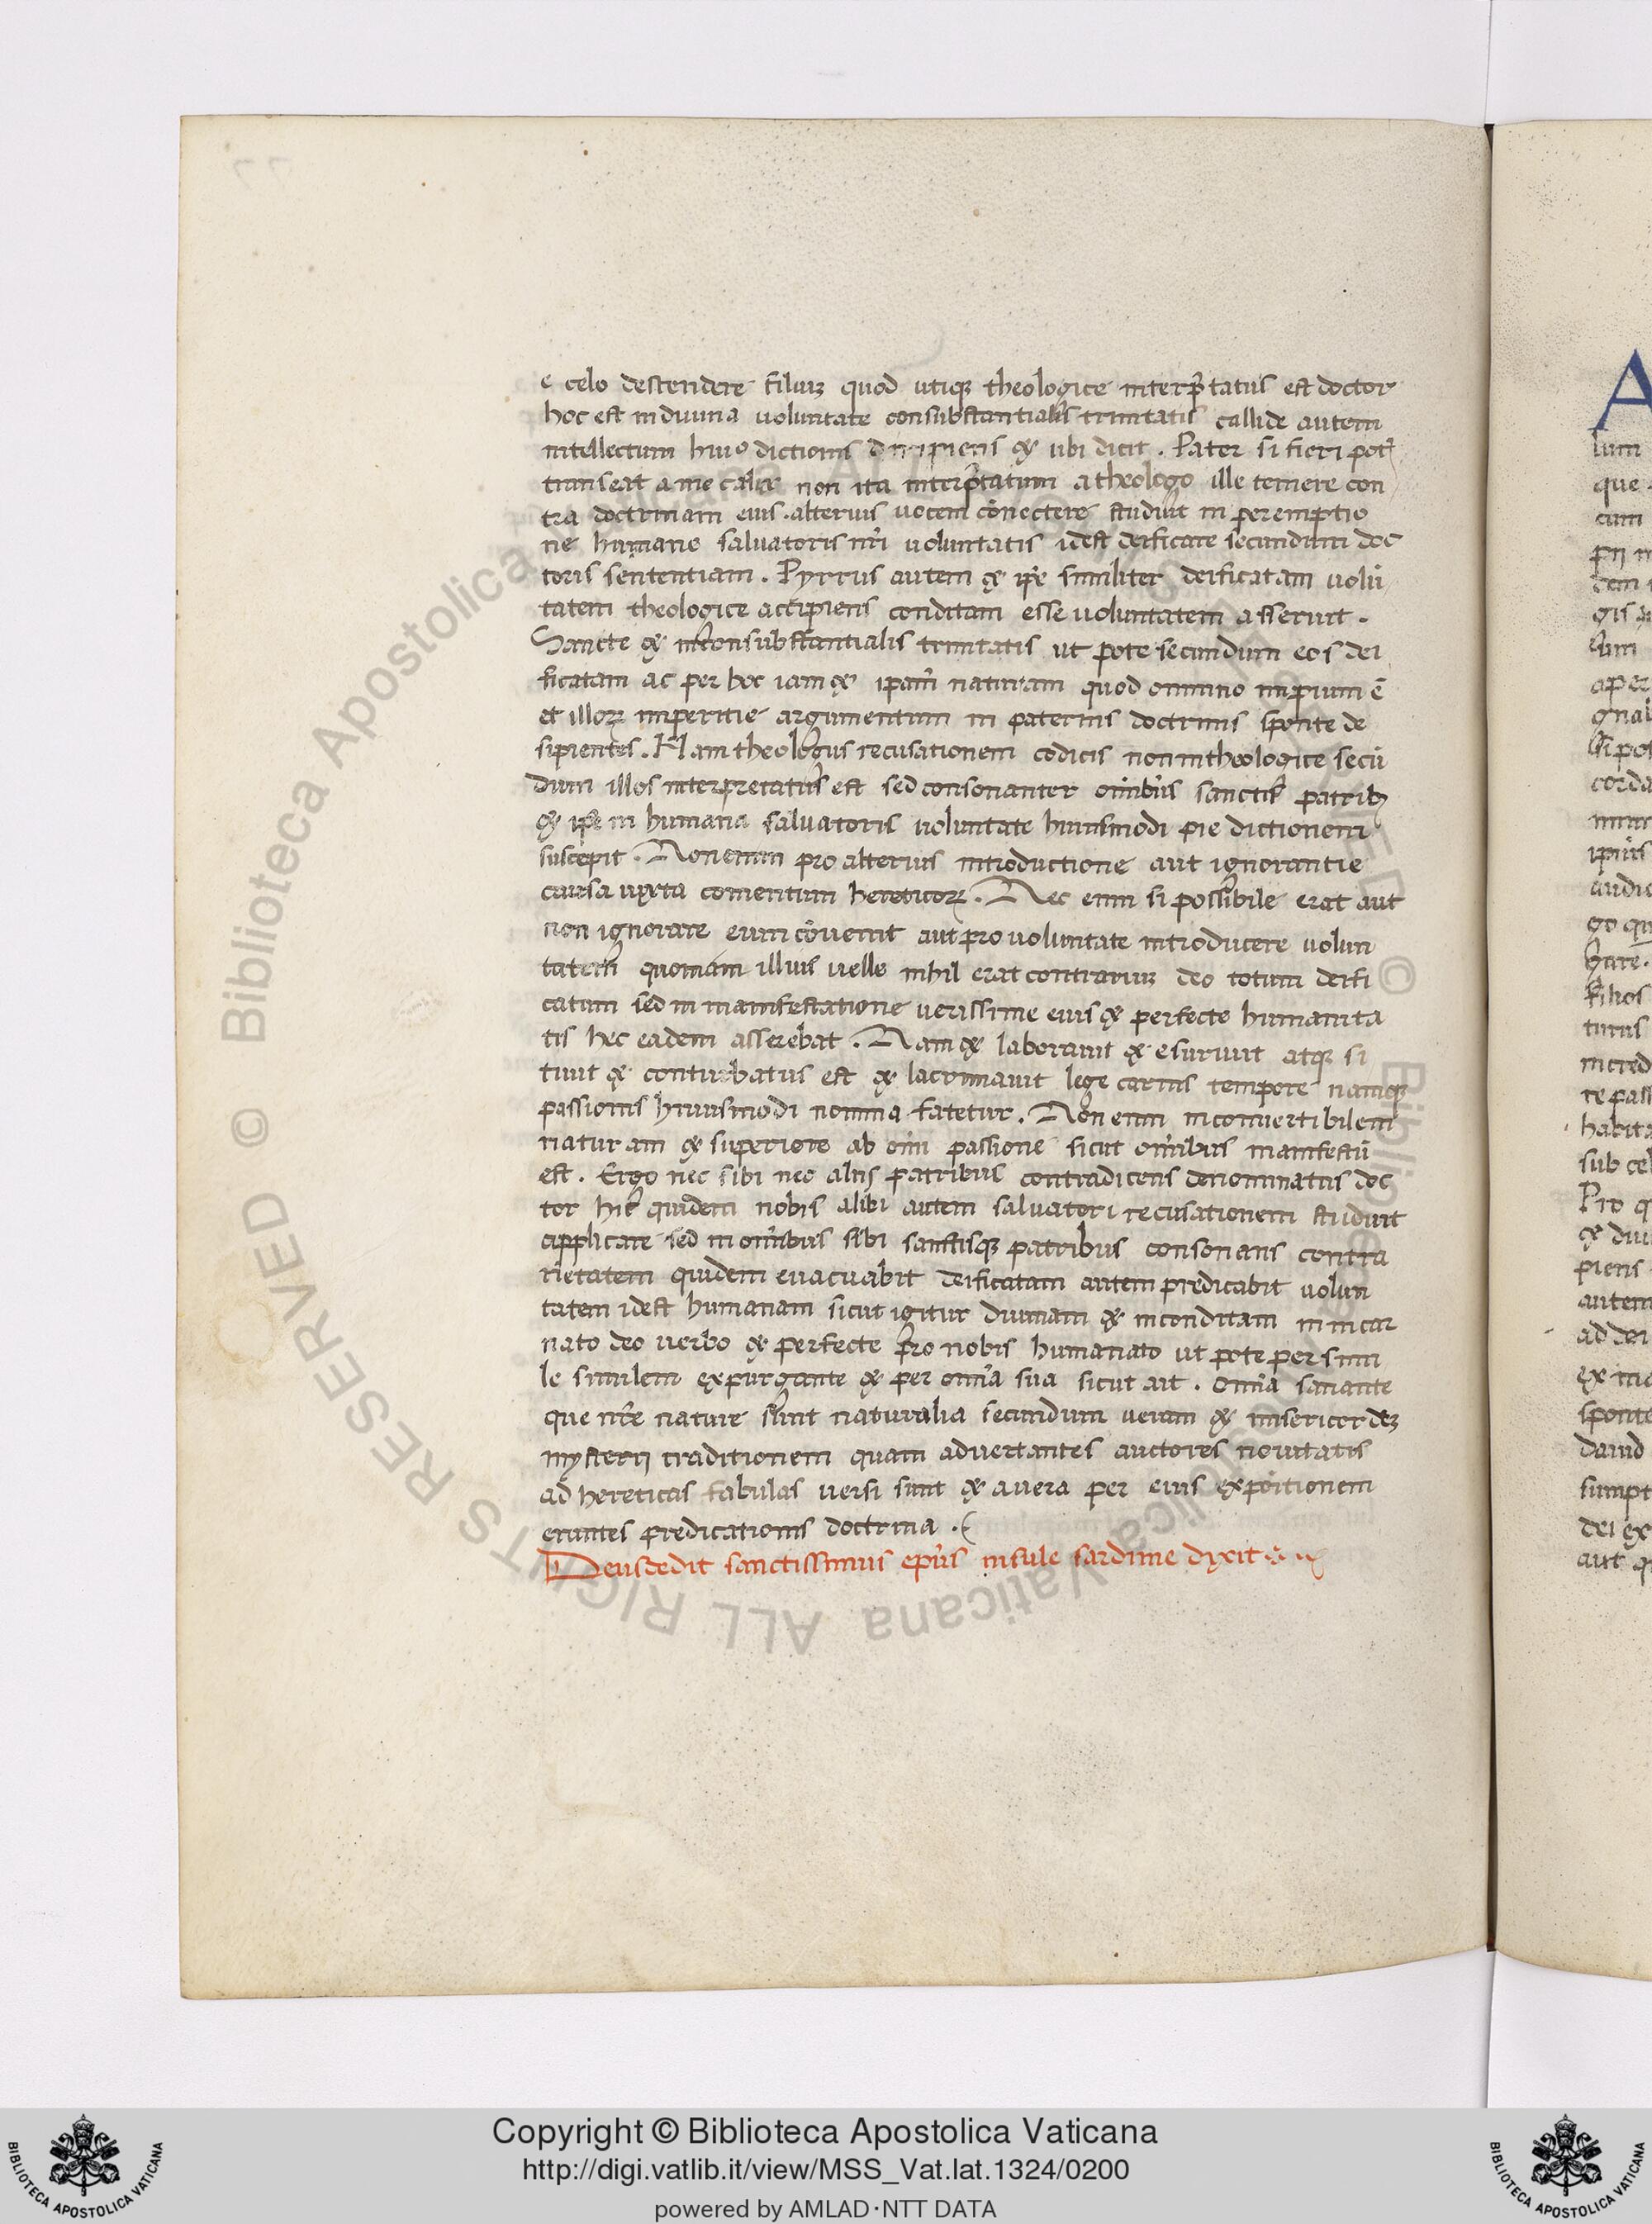 e celo descendere filiuꝫ quod utiqꝫ theologice interp̄tatus est doctor
hoc est in diuina uoluntate consubstantialis trinitatis callide autem
intellectum huiꝰ dictionis diripiens ⁊ ubi dicit . Pater si fieri pot̄
transeat a me calix non ita interp̄tatum a theologo ille temere con
tra doctrinam eius . alterius uocem cōnectere studuit in peremptio
ne humane saluatoris nr̄i uoluntatis idest deificate secundum doc
toris sententiam . Pyrrus autem ⁊ ip̄e similiter deificatam uolū
tatem theologice accipiens conditam esse uoluntatem asseruit .
Sancte ⁊ inconsubstantialis trinitatis ut pote secundum eos dei
ficatam ac per hoc iam ⁊ ipam̄ naturam quod omnino impium ē
et illoꝝ imperitie argumentum in paternis doctrinis sponte de
sipientes . Nam theologus recusationem codicis non intheologice secū
dum illos interpretatus est sed consonanter om̄ibus sanctis patribꝫ
⁊ ip̄e in humana saluatoris uoluntate huiusmodi pie dictionem
suscepit . Non enim pro alterius introductione aut ignorantie
causa iuxta comentum hereticoꝝ . Nec enim si possibile erat aut
non ignorare eum cōuenit aut pro uoluntate introducere uolun
tatem quoniam illius uelle nihil erat contrariuꝫ deo totum deifi
catum sed in manifestatione uerissime eius ⁊ perfecte humanita
tis hec eadem asserebat . Nam ⁊ laborauit ⁊ esuriuit atqꝫ si
tiuit ⁊ conturbatus est ⁊ lacrimauit lege carnis tempore namqꝫ
passionis huiusmodi nomina fatetur . Non enim inconuertibilem
naturam ⁊ superiore ab om̄i passione sicut om̄ibus manifestū
est . Ergo nec sibi nec aliis patribus contradicens denominatus doc
tor hic quidem nobis alibi autem saluatori recusationem studuit
applicare sed in om̄ibus sibi sanctisqꝫ patribus consonans contra
rietatem quidem euacuabit deificatam autem predicabit uolun
tatem idest humanam sicut igitur diuinam ⁊ inconditam in incar
nato deo uerbo ⁊ perfecte pro nobis humanato ut pote per simi
le similem expurgante ⁊ per om̄ia sua sicut ait . om̄ia sanante
que nr̄e nature sunt naturalia secundum ueram ⁊ misericordeꝫ
mysterij traditionem quam aduertantes auctores nouitatis
ad hereticas fabulas uersi sunt ⁊ auera per eius expoitionem
eruntes predicationis doctrina .
Deusdedit sanctissimus ep̄us insule sardinie dixit
A
lum
que
cum
pij
dem
gis
aper
gnal
corda
ipius
audi
go
filios
turus
incred
re pass
habita
sub cel
Pro q
⁊ diu
piens
autem
ad dei
ex
sponte
dauid
sumpt
dei ex
aut q
© Biblioteca Apostolica Vaticana ALL RIGHTS RESERVED
Copyright © Biblioteca Apostolica Vaticana
http://digi.vatlib.it/view/MSS_Vat.lat.1324/0200
powered by AMLAD·NTT DATA
BIBLIOTECA APOSTOLICA VATICANA
BIBLIOTECA APOSTOLICA VATICANA